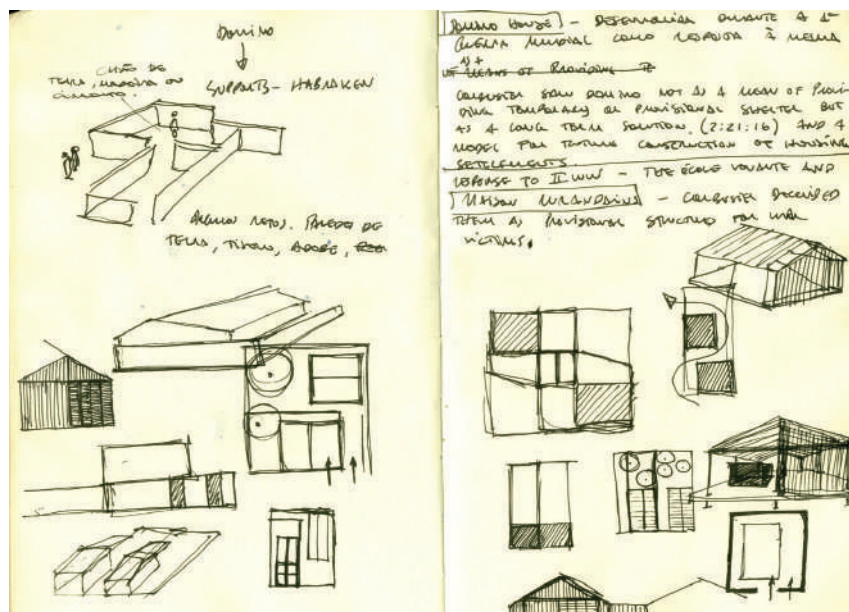 DOMINO
SUPPORTS - HABRAKEN
CHÃO DE
TERRA, MADEIRA OU
CIMENTO.
PAREDES DE
TERRA, TIJOLO, ADOBE,
DOMINO HOUSE - DESENVOLVIDA DURANTE A 1ª
GUERRA MUNDIAL COMO RESPOSTA À
MEANS OF PROVIDING
CORBUSIER SAW DOMINO NOT AS A MEAN OF PROVI-
DING TEMPORARY OR PROVISIONAL SHELTER BUT
AS A LONG TERM SOLUTION. (2:21:16) AND A
MODEL FOR FUTURE CONSTRUCTION OF HOUSING
SETTLEMENTS.
RESPONSE TO II WW - THE ÉCOLE VOLANTE AND
MAISON MURONDINS - CORBUSIER
THEM AS PROVISIONAL STRUCTURES FOR WAR
VICTIMS.